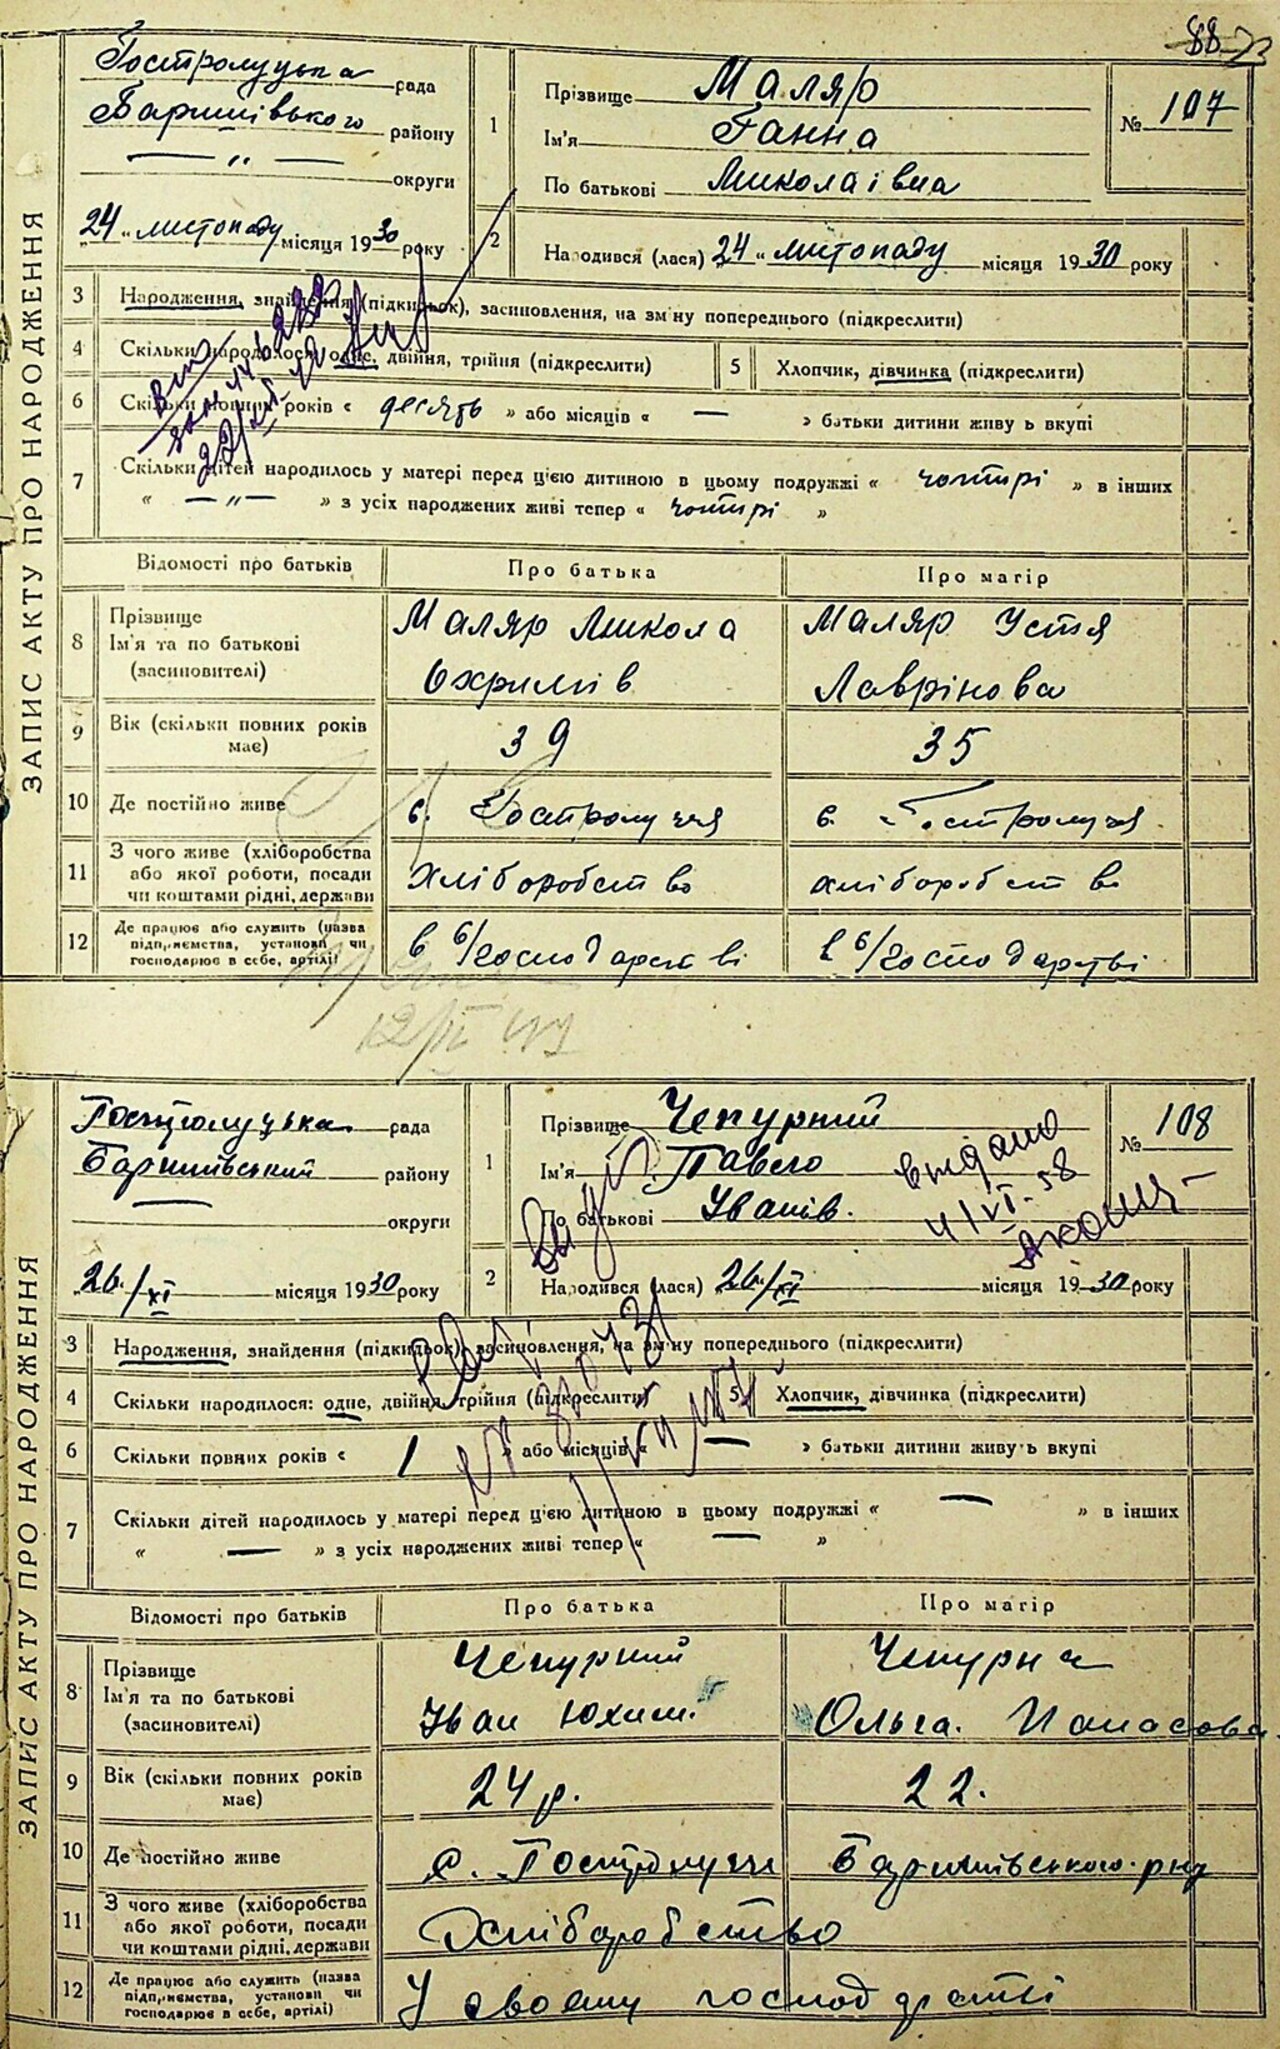 88
Гостролуцька рада
Баришівького району
— „ — округи
„24" листопаду місяця 1930 року
1
Прізвище Маляр
Ім'я Ганна
По батькові Миколаівна
№ 107
2
Народився (лася) „24" листопаду місяця 1930 року
3 Народження, знайдення (підкидьок), засиновлення, на зміну попереднього (підкреслити)
4 Скільки народилося: одне, двійня, трійня (підкреслити) 5 Хлопчик, дівчинка (підкреслити)
6 Скільки повних років « десять » або місяців « — » батьки дитини живуть вкупі
7 Скільки дітей народилось у матері перед цією дитиною в цьому подружжі « чотирі » в інших
« — „ — » з усіх народжених живі тепер « чотирі »
Відомості про батьків Про батька Про матір
8 Прізвище
Ім'я та по батькові
(засиновителі)
Маляр Микола
Охримів
Маляр Устя
Лаврінова
9 Вік (скільки повних років має)
39 35
10 Де постійно живе с. Гостролуччя с. Гостролуччя
11 З чого живе (хліборобства
або якої роботи, посади
чи коштами рідні, держави
хліборобство хліборобство
12 Де працює або служить (назва
підприємства, установи чи
господарює в себе, артілі)
в с/господарстві в с/господарстві
ЗАПИС АКТУ ПРО НАРОДЖЕННЯ
Гостролуцька рада
Баришівський району
— округи
„26./XI місяця 1930 року
1
Прізвище Чепурний
Ім'я Павло
По батькові Іванів.
№ 108
видано
4/VI-58
2
Народився (лася) „26./XI — місяця 1930 року
3 Народження, знайдення (підкидьок), засиновлення, на зміну попереднього (підкреслити)
4 Скільки народилося: одне, двійня, трійня (підкреслити) 5 Хлопчик, дівчинка (підкреслити)
6 Скільки повних років « 1 » або місяців « — » батьки дитини живуть вкупі
7 Скільки дітей народилось у матері перед цією дитиною в цьому подружжі « — » в інших
« — » з усіх народжених живі тепер « — »
Відомості про батьків Про батька Про матір
8 Прізвище
Ім'я та по батькові
(засиновителі)
Чепурний
Іван Юхим.
Чепурна
Ольга. Панасова.
9 Вік (скільки повних років має)
24 р. 22.
10 Де постійно живе с. Гостролуччя Баришівського р-ну
11 З чого живе (хліборобства
або якої роботи, посади
чи коштами рідні, держави
Хліборобство
12 Де працює або служить (назва
підприємства, установи чи
господарює в себе, артілі)
У своєму господарстві
ЗАПИС АКТУ ПРО НАРОДЖЕННЯ